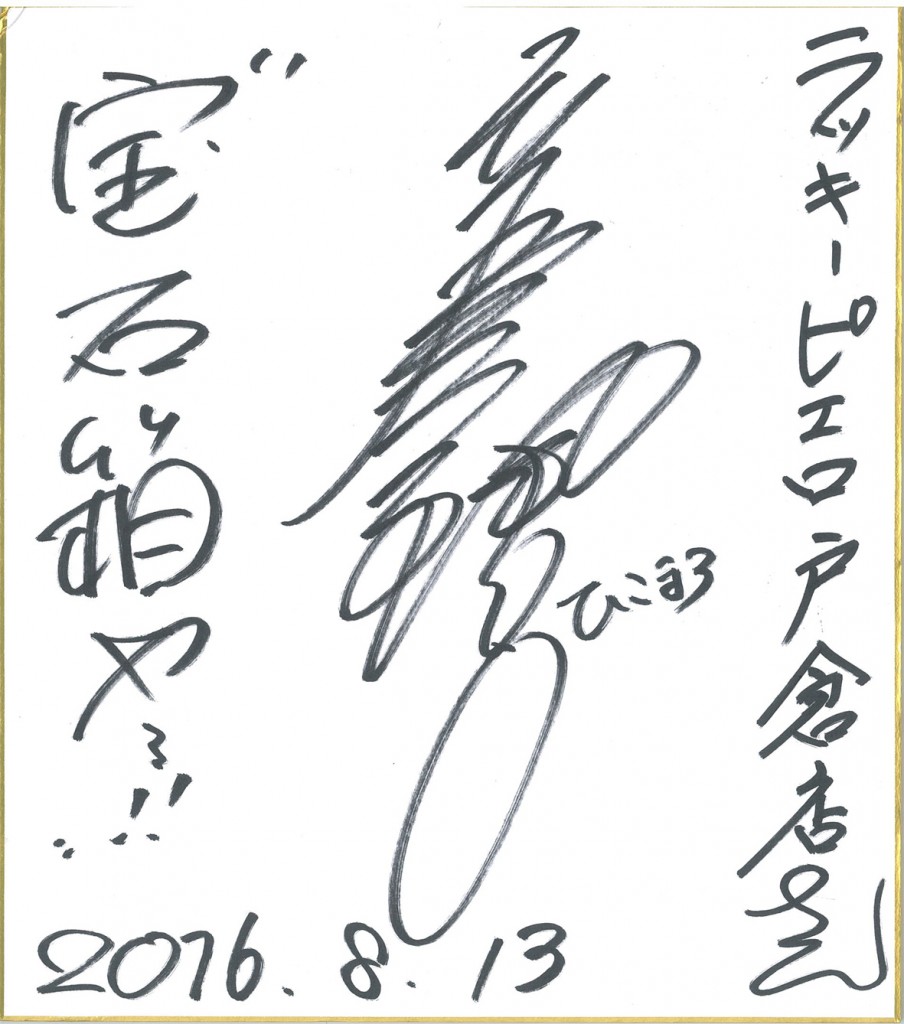 ラッキーピエロ戸倉店さん
ひこまろ
“宝石箱や〜!!”
2016.8.13